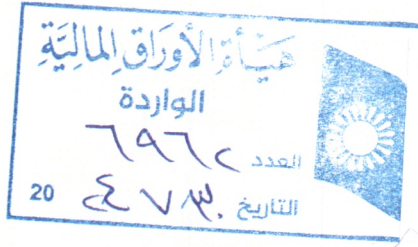 هيأة الأوراق المالية
الواردة
العدد ٦٩٦٢
التاريخ 20